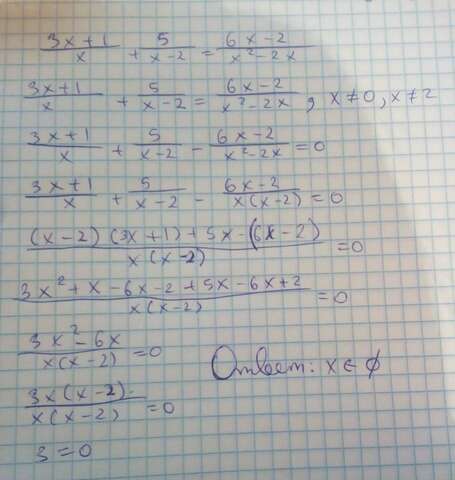 (3x+1)/x + 5/(x-2) = (6x-2)/(x²-2x)
(3x+1)/x + 5/(x-2) = (6x-2)/(x²-2x), x≠0, x≠2
(3x+1)/x + 5/(x-2) - (6x-2)/(x²-2x) = 0
(3x+1)/x + 5/(x-2) - (6x-2)/(x(x-2)) = 0
((x-2)(3x+1)+5x-(6x-2))/(x(x-2)) = 0
(3x²+x-6x-2+5x-6x+2)/(x(x-2)) = 0
(3x²-6x)/(x(x-2)) = 0
Ответ: x∈∅
(3x(x-2))/(x(x-2)) = 0
3=0